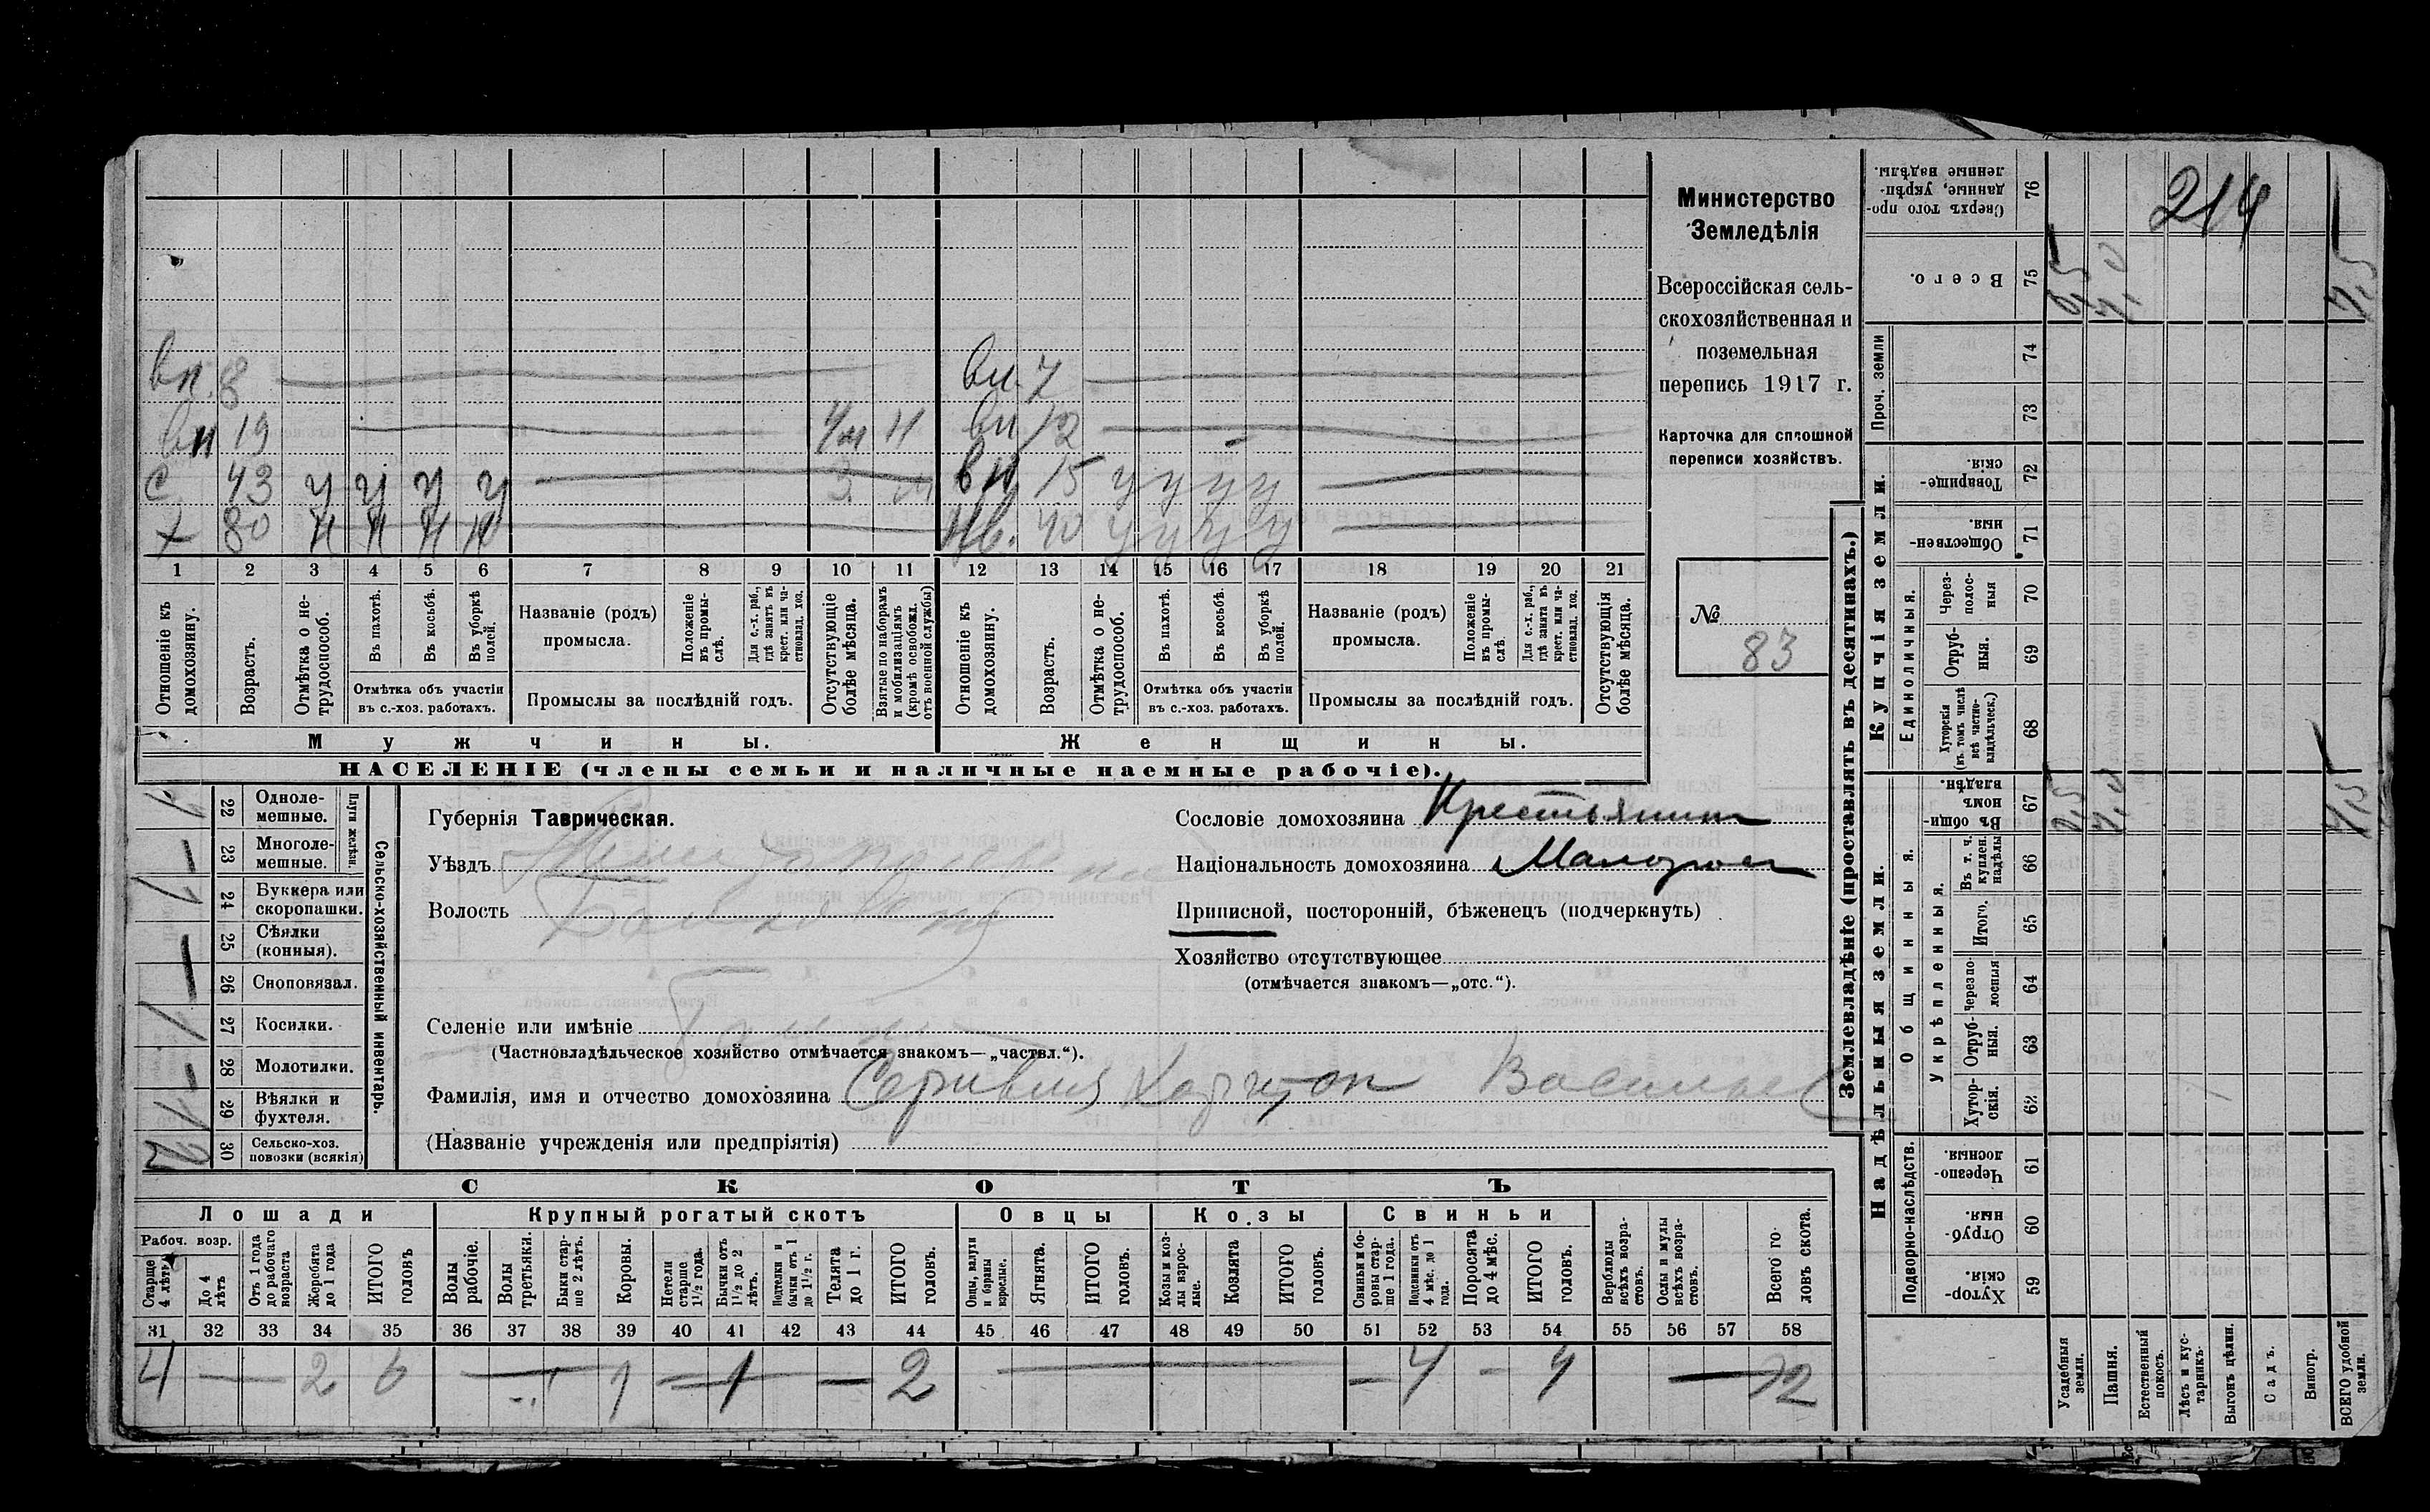 214
Министерство
Земледѣлія
Всероссійская сель-
скохозяйственная и
поземельная
перепись 1917 г.
Карточка для сплошной
переписи хозяйствъ.
№
83
вн. 8
вн. 7
вн 19
вн 12
с 43 у у у у
вн 15 у у у у
х 80 н н н н
40 у у у у
1 2 3 4 5 6 7 8 9 10 11 12 13 14 15 16 17 18 19 20 21
Отношеніе къ домохозяину.
Возрастъ.
Отмѣтка о не-трудоспособ.
Въ пахотѣ.
Въ косьбѣ.
Въ уборкѣ полей.
Отмѣтка объ участіи въ с.-хоз. работахъ.
Названіе (родъ) промысла.
Положеніе въ промы-слѣ.
Для с.-х. раб., гдѣ занятъ въ крест. или ча-стновлад. хоз.
Промыслы за послѣдній годъ.
Отсутствующіе болѣе мѣсяца.
Взятые по наборамъ и мобилизаціямъ (кромѣ освобожд. отъ военной службы)
Отношеніе къ домохозяину.
Возрастъ.
Отмѣтка о не-трудоспособ.
Въ пахотѣ.
Въ косьбѣ.
Въ уборкѣ полей.
Отмѣтка объ участіи въ с.-хоз. работахъ.
Названіе (родъ) промысла.
Положеніе въ промы-слѣ.
Для с.-х. раб., гдѣ занята въ крест. или ча-стновлад. хоз.
Промыслы за послѣдній годъ.
Отсутствующія болѣе мѣсяца.
Мужчины.
Женщины.
НАСЕЛЕНІЕ (члены семьи и наличные наемные рабочіе).
Сельско-хозяйственный инвентарь.
Плуги желѣзн.
22 Одноле-мешные.
23 Многоле-мешные.
24 Буккера или скоропашки.
25 Сѣялки (конныя).
26 Сноповязал.
27 Косилки.
28 Молотилки.
29 Вѣялки и фухтеля.
30 Сельско-хоз. повозки (всякія)
Губернія Таврическая.
Уѣздъ
Волость
Селеніе или имѣніе
(Частновладѣльческое хозяйство отмѣчается знакомъ—„частвл.“).
Фамилія, имя и отчество домохозяина Харитон Васильев
(Названіе учрежденія или предпріятія)
Сословіе домохозяина Крестьянин
Національность домохозяина Малорос
Приписной, посторонній, бѣженецъ (подчеркнуть)
Хозяйство отсутствующее
(отмѣчается знакомъ—„отс.“).
СКОТЪ
Лошади
Крупный рогатый скотъ
Овцы
Козы
Свиньи
Рабоч. возр.
Старше 4 лѣтъ
До 4 лѣтъ
Отъ 1 года до рабочаго возраста
Жеребята до 1 года
ИТОГО головъ
Волы рабочіе.
Волы третьяки.
Быки стар-ше 2 лѣтъ.
Коровы.
Нетели старше 1½ года.
Бычки отъ 1½ до 2 лѣтъ.
Подтелки и бычки отъ 1 до 1½ г.
Телята до 1 г.
ИТОГО головъ.
Овцы, валухи и бараны взрослые.
Ягнята.
ИТОГО головъ.
Козы и коз-лы взрос-лые.
Козлята
ИТОГО головъ.
Свиньи и бо-ровы стар-ше 1 года.
Подсвинки отъ 4 мѣс. до 1 года.
Поросята до 4 мѣс.
ИТОГО головъ.
Верблюды всѣхъ возра-стовъ.
Ослы и мулы всѣхъ возра-стовъ.
Всего го-ловъ скота.
31 32 33 34 35 36 37 38 39 40 41 42 43 44 45 46 47 48 49 50 51 52 53 54 55 56 57 58
4 — 2 6 — 1 — 1 — 2 — — 4 — 4 — 12
Землевладѣніе (проставлять въ десятинахъ.)
Купчія земли.
Надѣльныя земли.
Проч. земли
Единоличныя.
Общинныя.
Укрѣпленныя.
Подворно-наслѣдств.
76 Сверхъ того про-данные, укрѣп-ленные надѣлы.
75 Всего.
74
73
72 Товарище-скія.
71 Обществен-ныя.
70 Через-полос-ныя
69 Отруб-ныя.
68 Хуторскія (въ томъ числѣ всѣ частно-владѣльческ.)
67 Въ общи-номъ владѣн.
66 Въ т. ч. куплен. надѣлы
65 Итого.
64 Черезпо-лосныя
63 Отруб-ныя.
62 Хутор-скія.
61 Черезпо-лосныя.
60 Отруб-ныя.
59 Хутор-скія.
0,5 7,0 7,5
0,5 7,0 7,5
Усадебныя земли.
Пашня.
Естественный покосъ.
Лѣсъ и кус-тарникъ.
Выгонъ цѣлин.
Садъ.
Виногр.
ВСЕГО удобной земли.